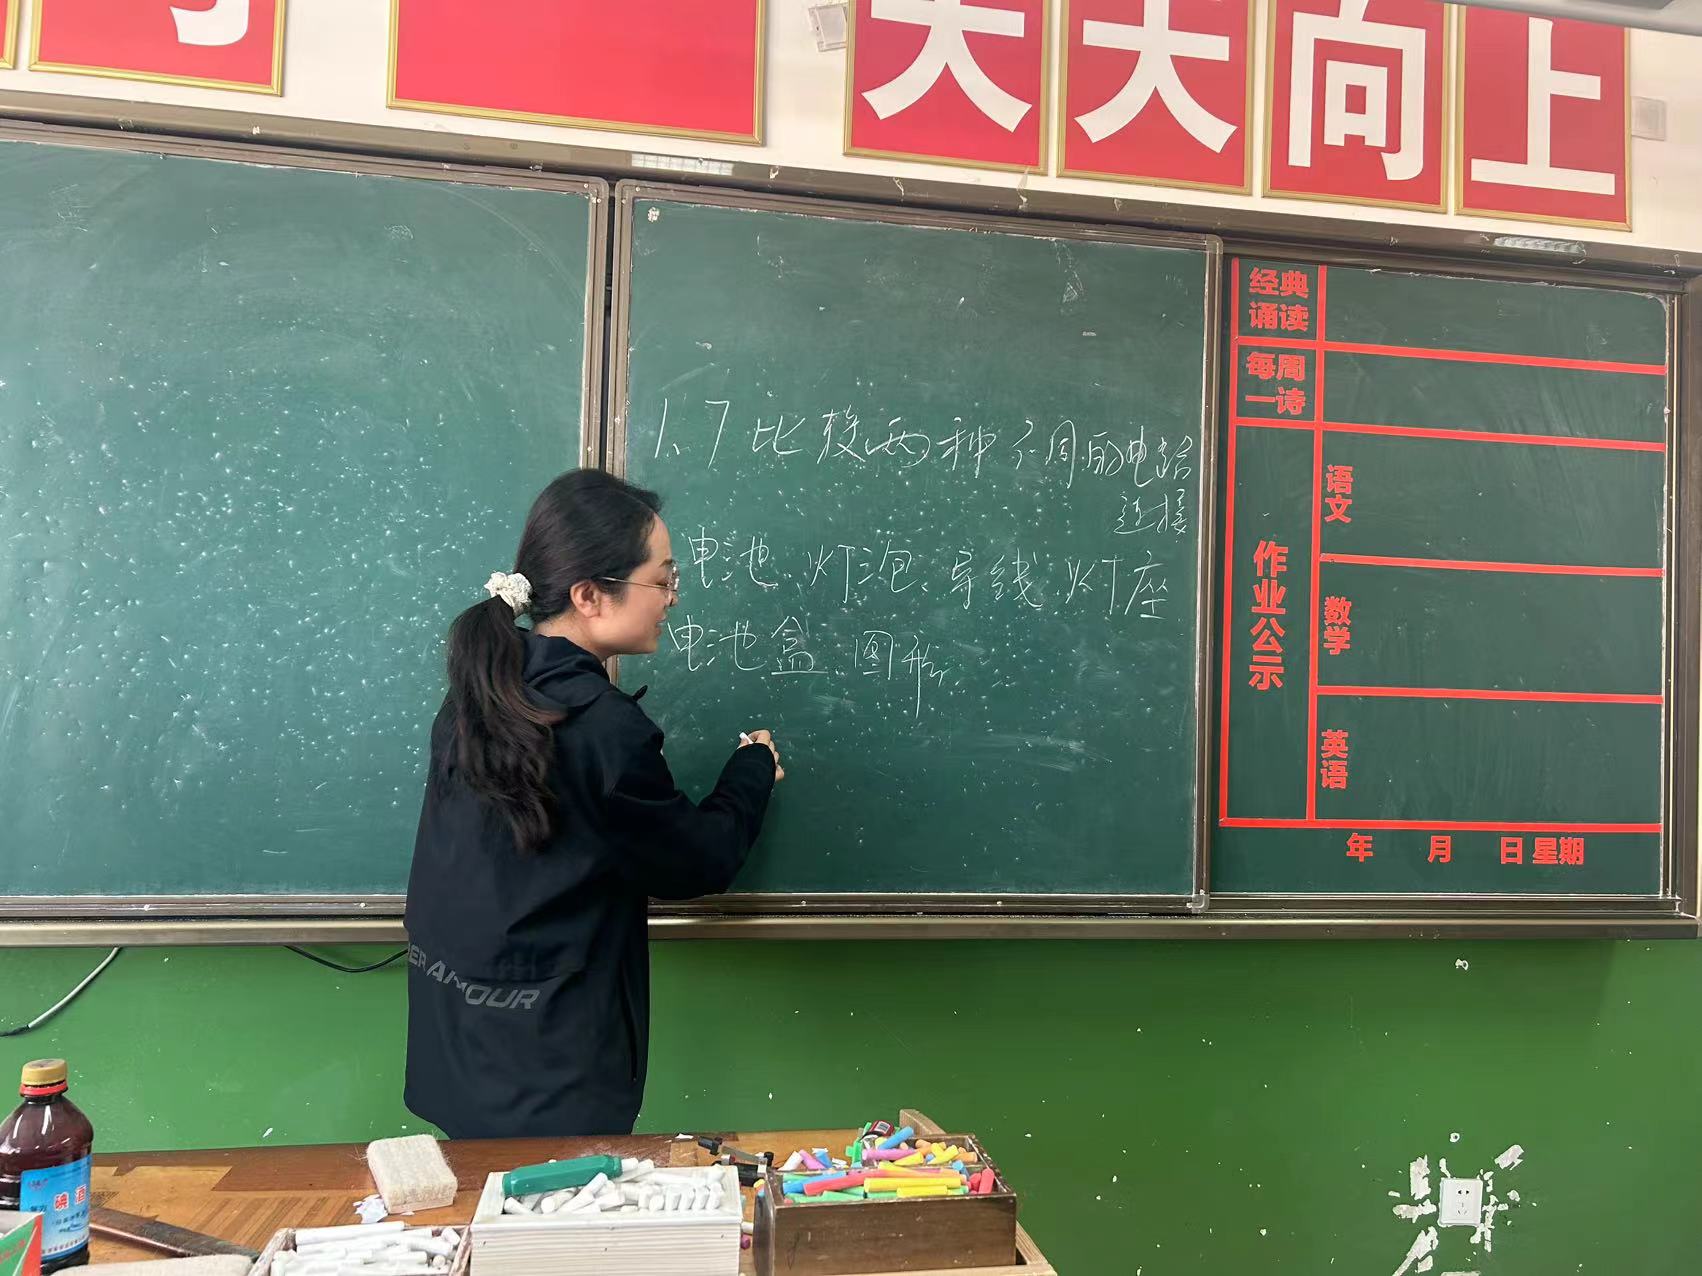 天天向上
1.7 比较两种不同的电路
连接
电池、灯泡、导线、灯座
电池盒、图形
经典
诵读
每周
一诗
作业公示
语文
数学
英语
年 月 日 星期
ER ARMOUR
碘酒